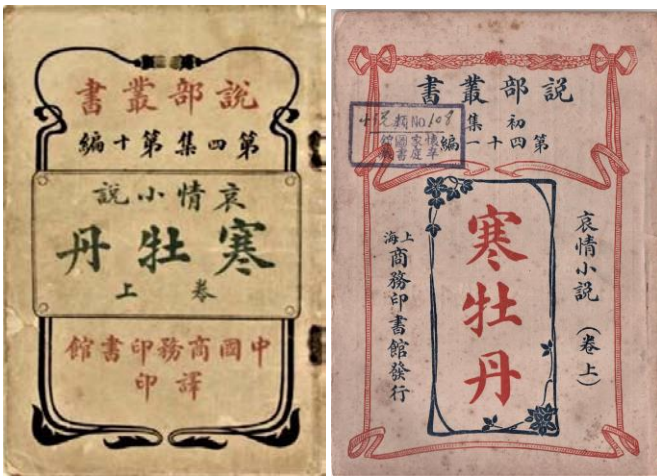 說部叢書
第四集第十編
哀情小說
寒牡丹
卷上
中國商務印書館
譯印
說部叢書
初集
第四十一編
小說類No.108
哀情小說（卷上）
寒牡丹
上海商務印書館發行